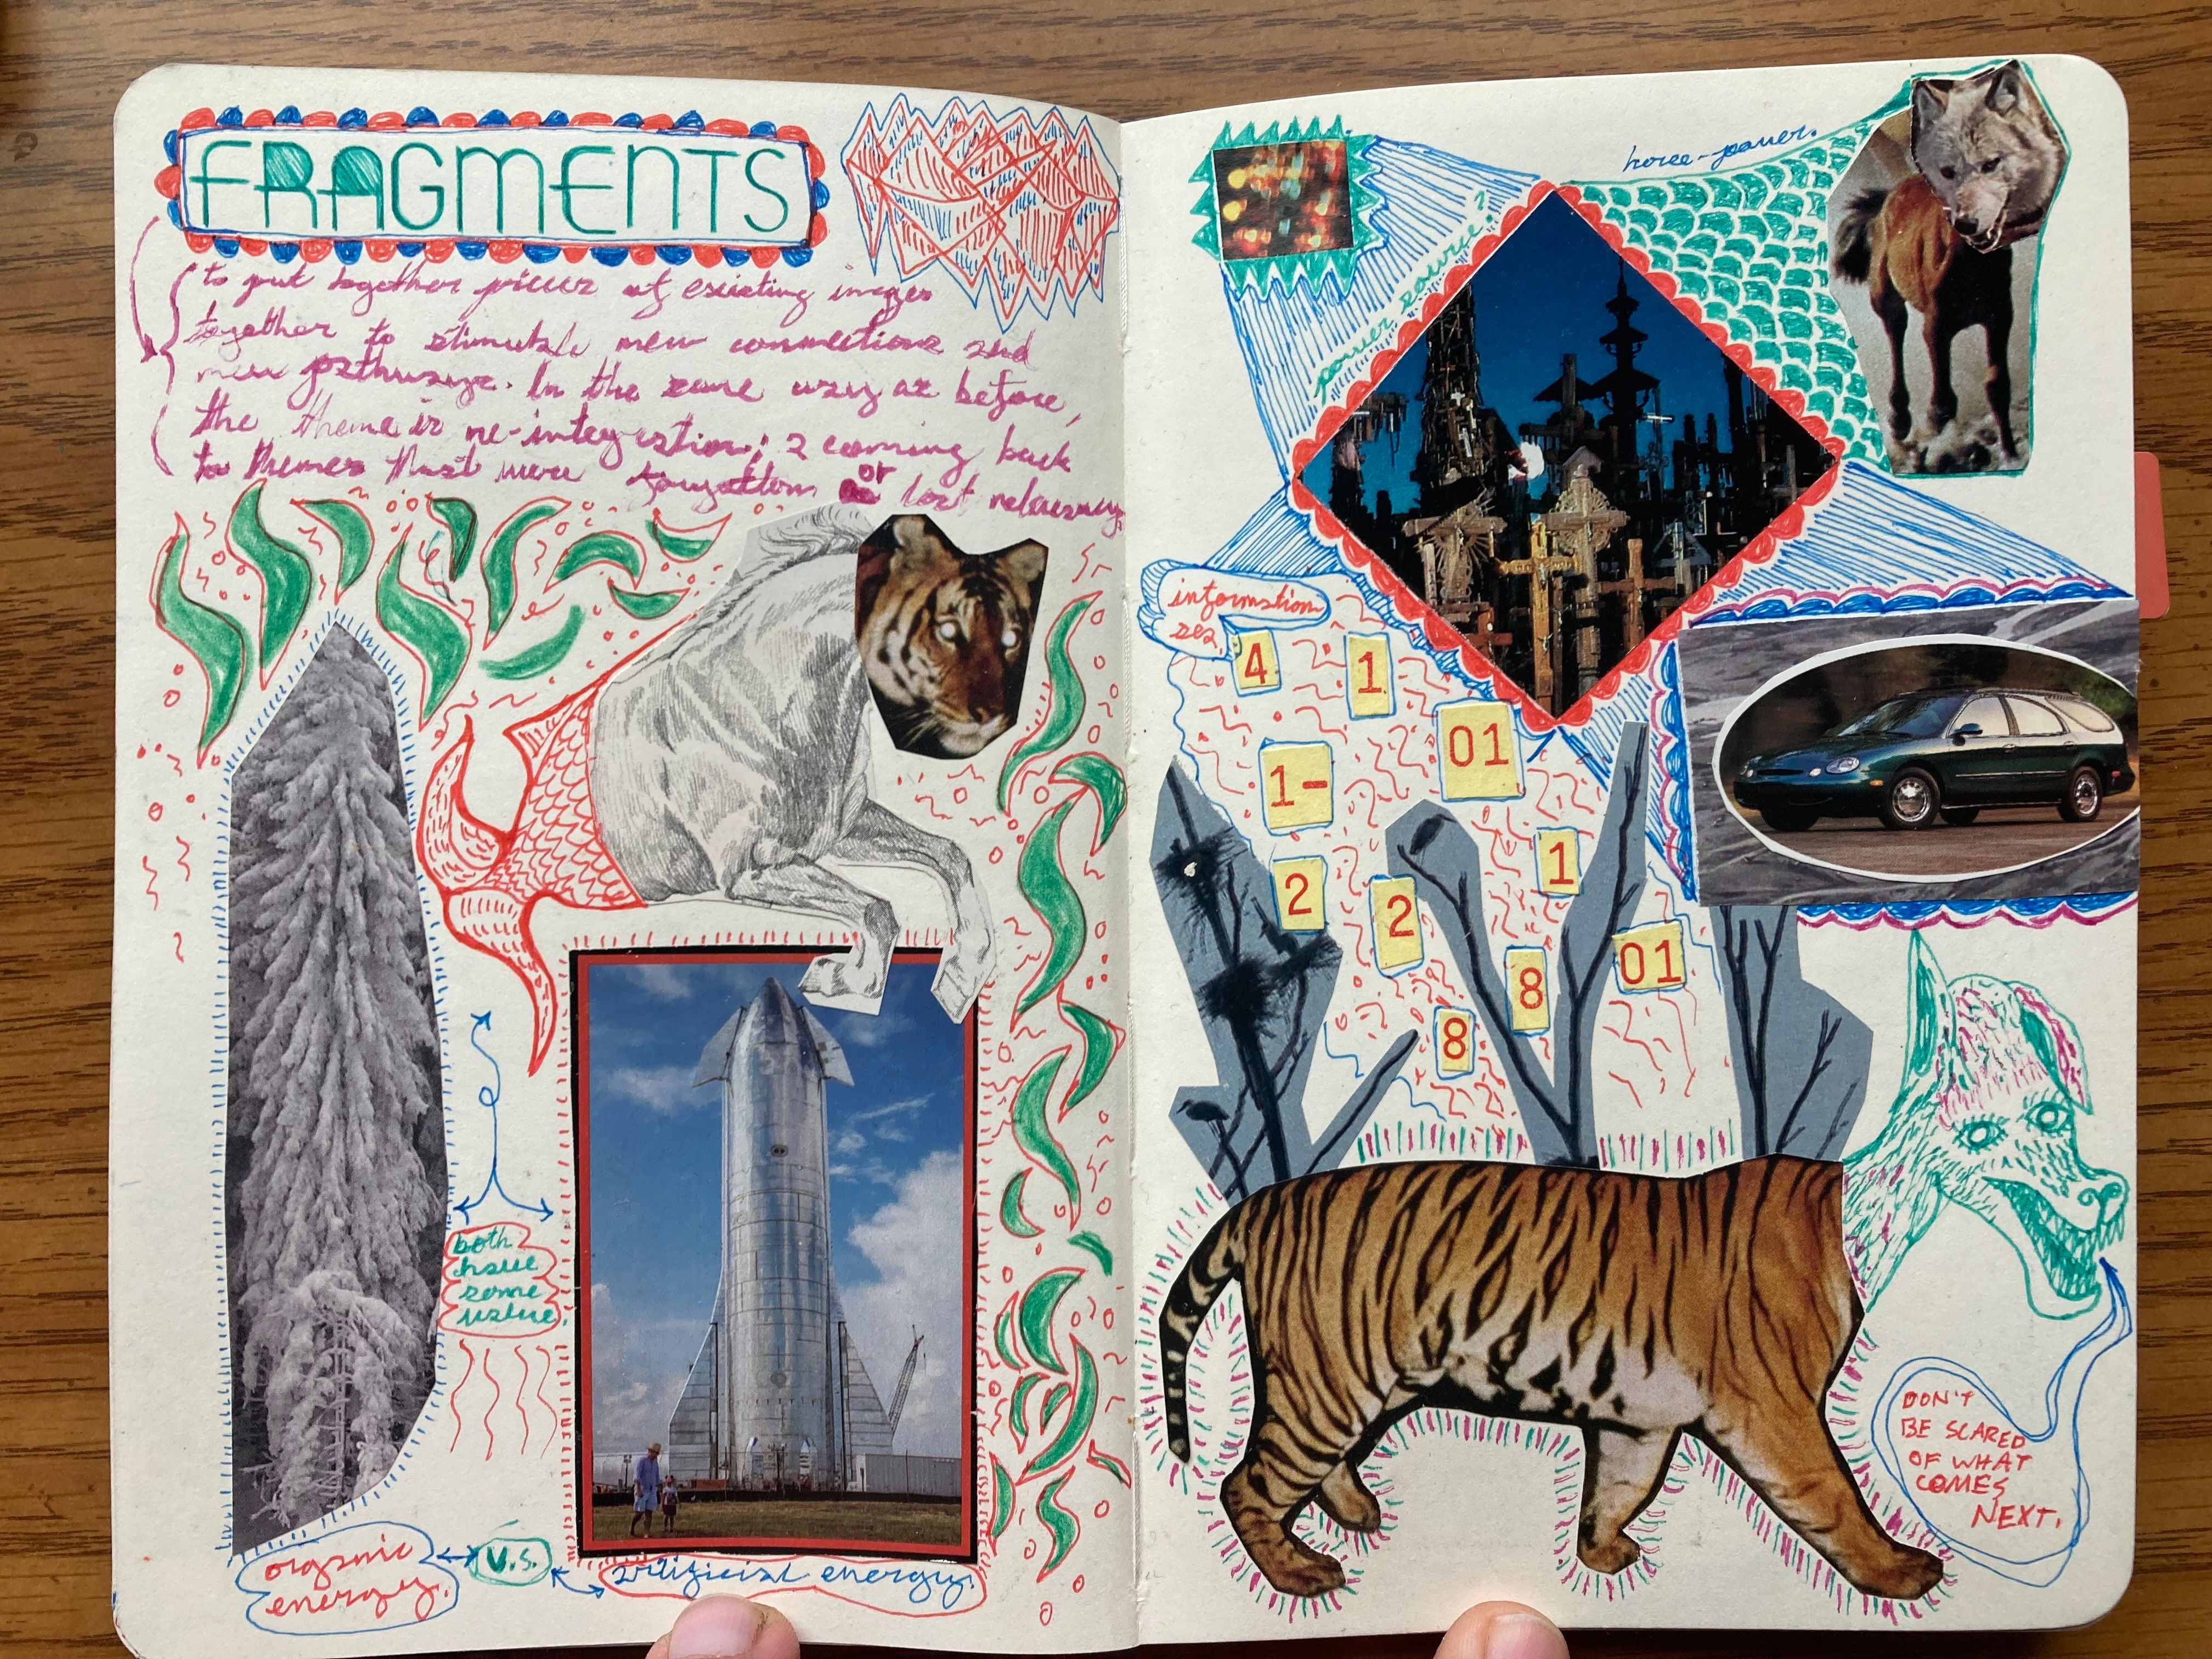 FRAGMENTS
to put together pieces of existing images
together to stimulate new connections and
new pathways. In the same way as before,
the theme is re-integration; a coming back
to themes that were forgotten or lost relevancy
both
have
some
value.
organic
energy.
V.S.
artificial energy.
power source?
horse-power.
information
sea
4
1
01
1-
1
2
2
8
01
8
DON'T
BE SCARED
OF WHAT
COMES
NEXT.